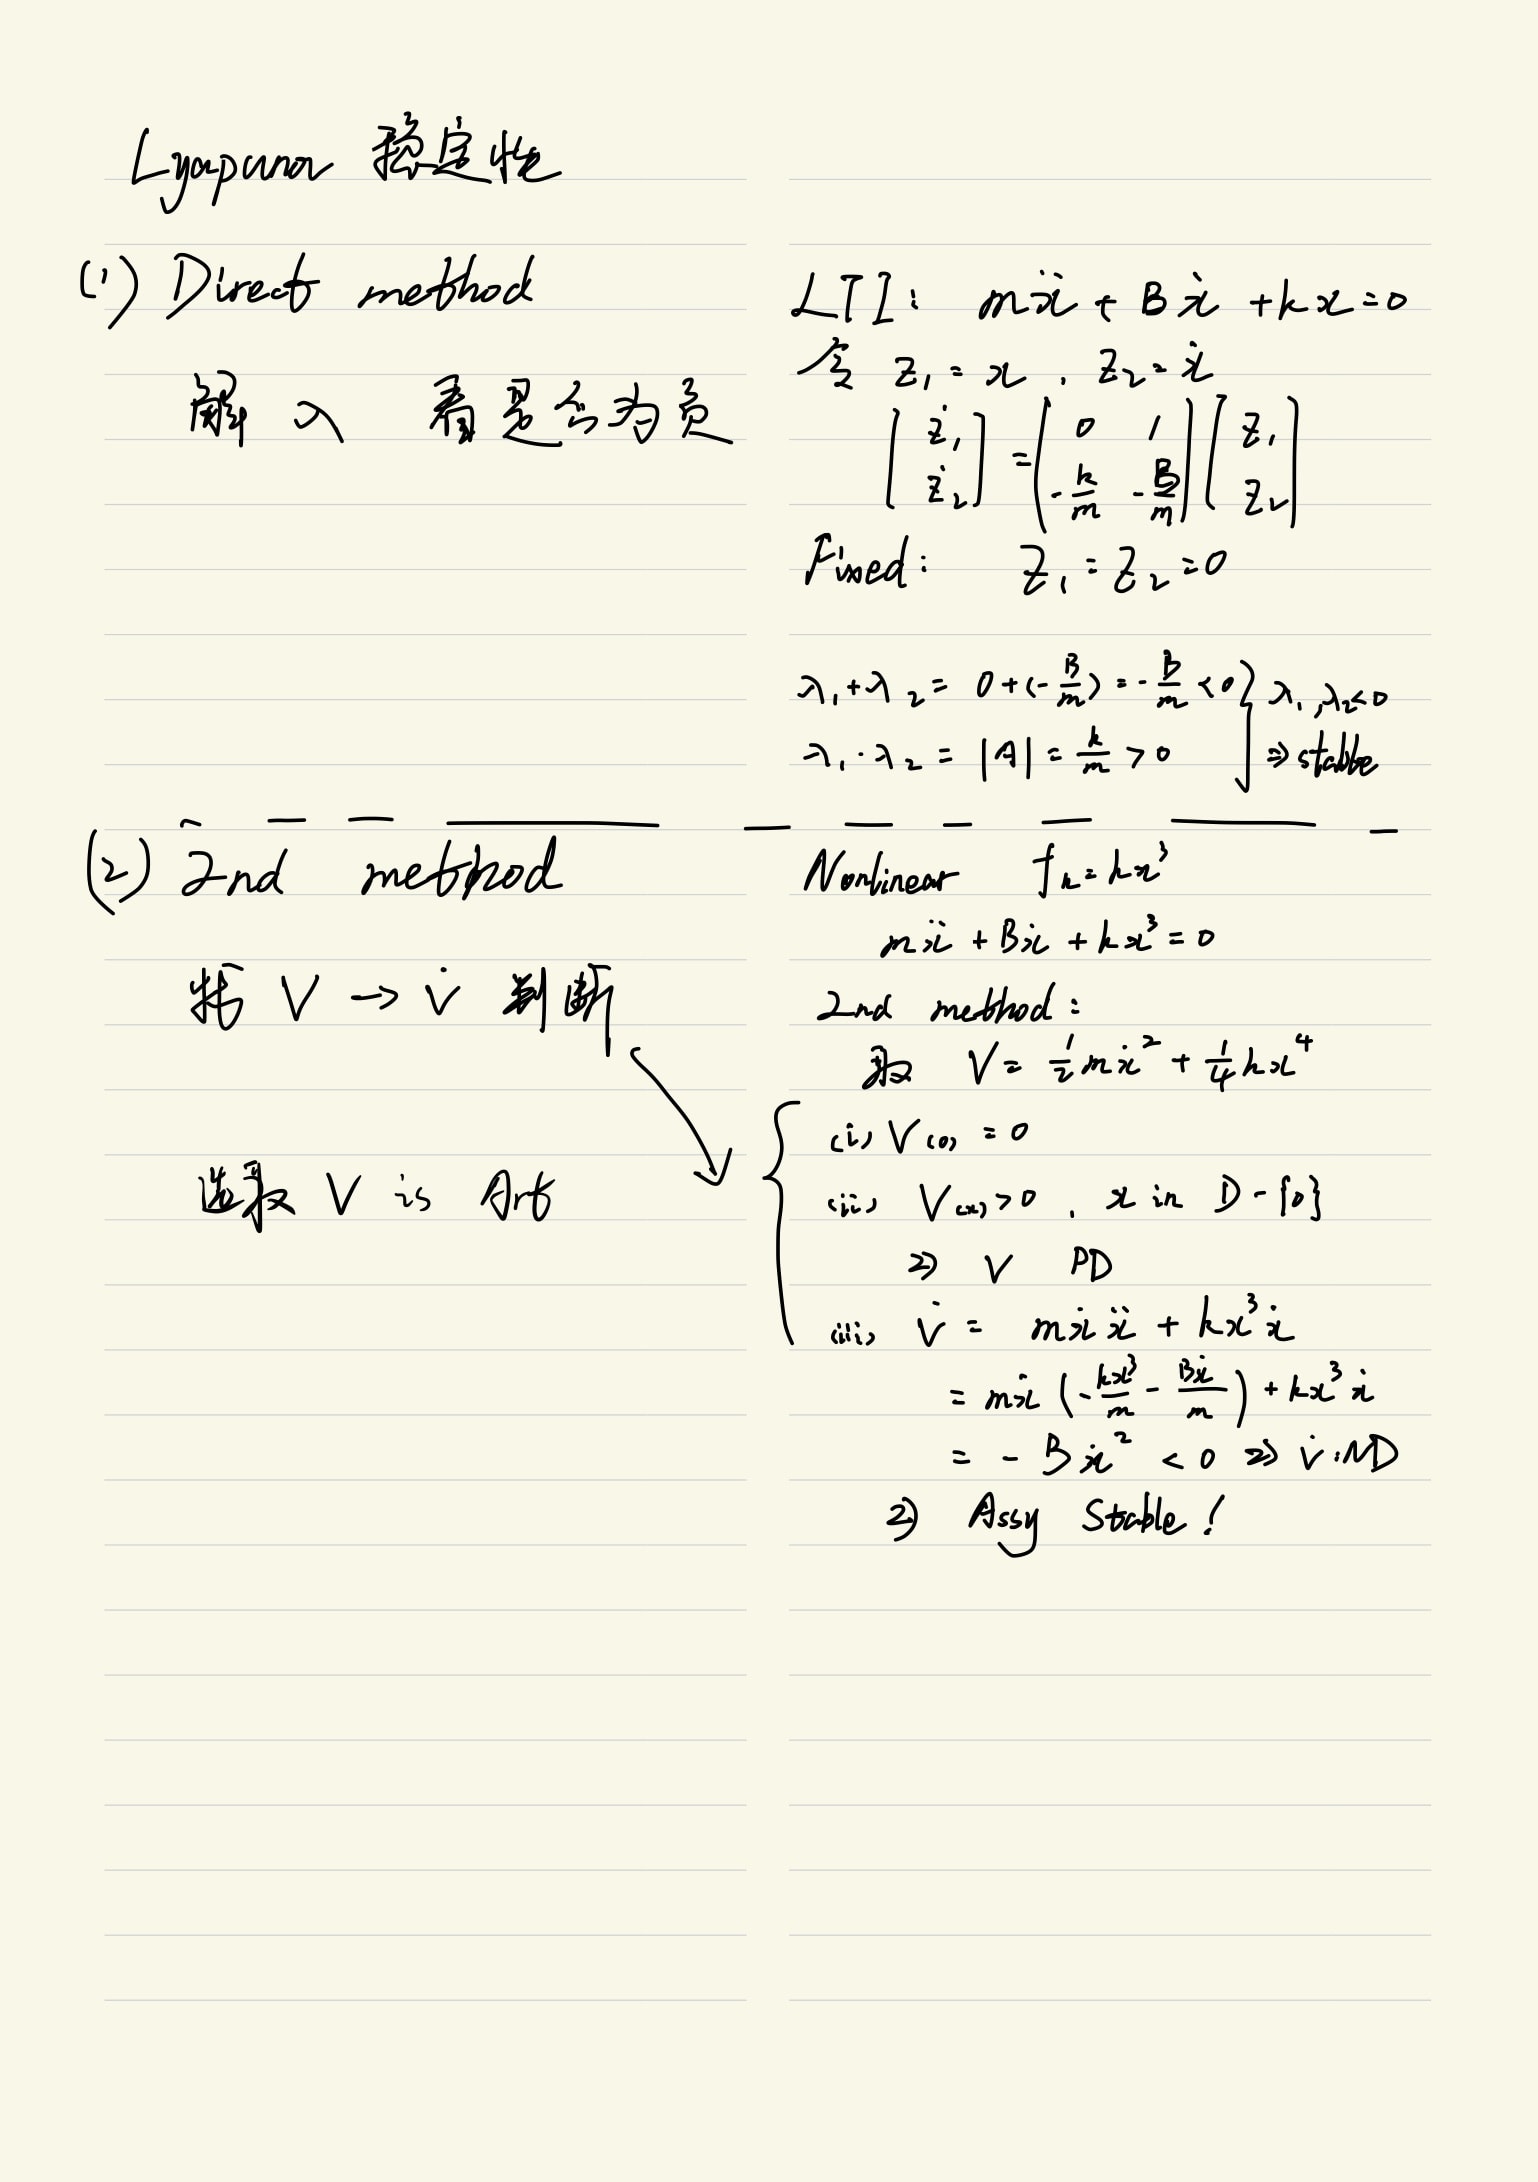 Lyapunov 稳定性
(1) Direct method
解 λ 看是否为负
LTI: mẍ + Bẋ + kx = 0
令 z₁ = x , z₂ = ẋ
[ż₁ ; ż₂] = (0 1 ; -k/m -B/m) [z₁ ; z₂]
Fixed: z₁ = z₂ = 0
λ₁+λ₂ = 0+(-B/m) = -B/m <0 } λ₁,λ₂<0
λ₁·λ₂ = |A| = k/m > 0 ⇒ stable
(2) 2nd method
找 V → V̇ 判断
选取 V is Art
Nonlinear fₖ = kx³
mẍ + Bẋ + kx³ = 0
2nd method:
取 V = ½mẋ² + ¼kx⁴
(i) V(0) = 0
(ii) V(x)>0 , x in D-{0}
⇒ V PD
(iii) V̇ = mẋẍ + kx³ẋ
= mẋ (-kx³/m - Bẋ/m) + kx³ẋ
= - Bẋ² < 0 ⇒ V̇: ND
⇒ Assy Stable!